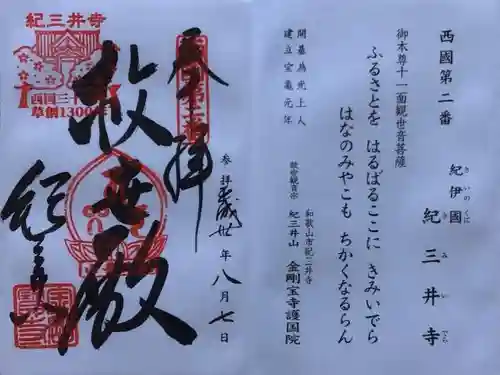 西國第二番
紀伊國
きいのくに
紀三井寺
きみいでら
御本尊十一面観世音菩薩
ふるさとを はるばるここに きみいでら
はなのみやこも ちかくなるらん
開基為光上人
建立宝亀元年
救世観音宗
和歌山市紀三井寺
紀三井山 金剛宝寺護国院
参拝平成卅年八月七日
奉拝
救世殿
紀三井寺
紀三井寺
西国三十
草創1300年